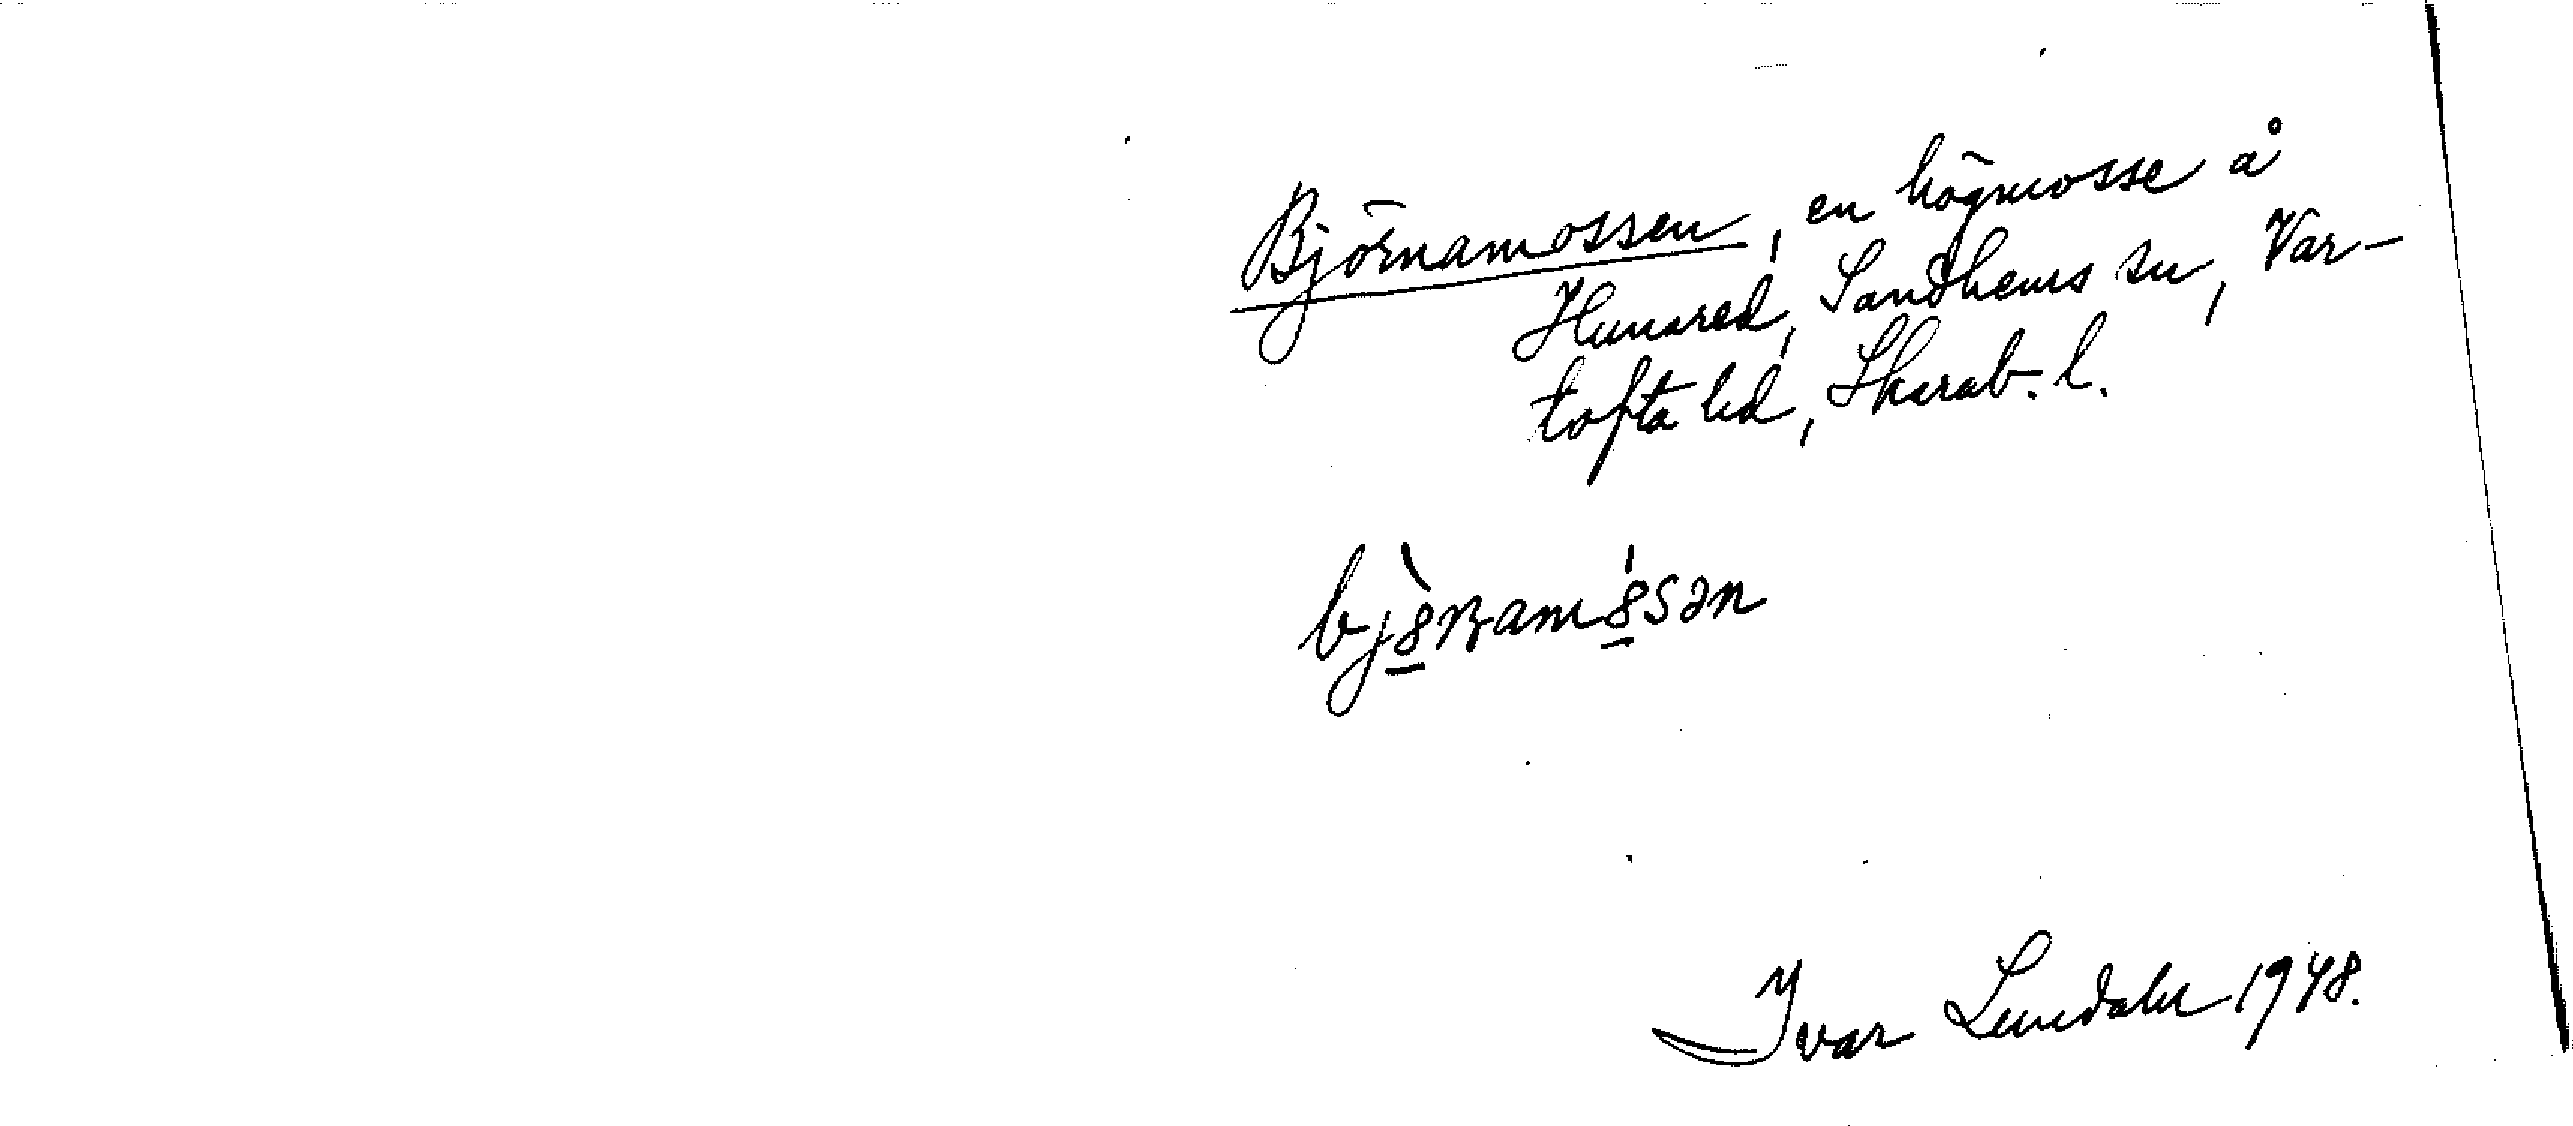 Björnamossen, en högmosse å
Hunared, Sandhems sn, Var-
tofta hd, Skarab. l.
bjònamósən
Ivar Lundahl 1948.